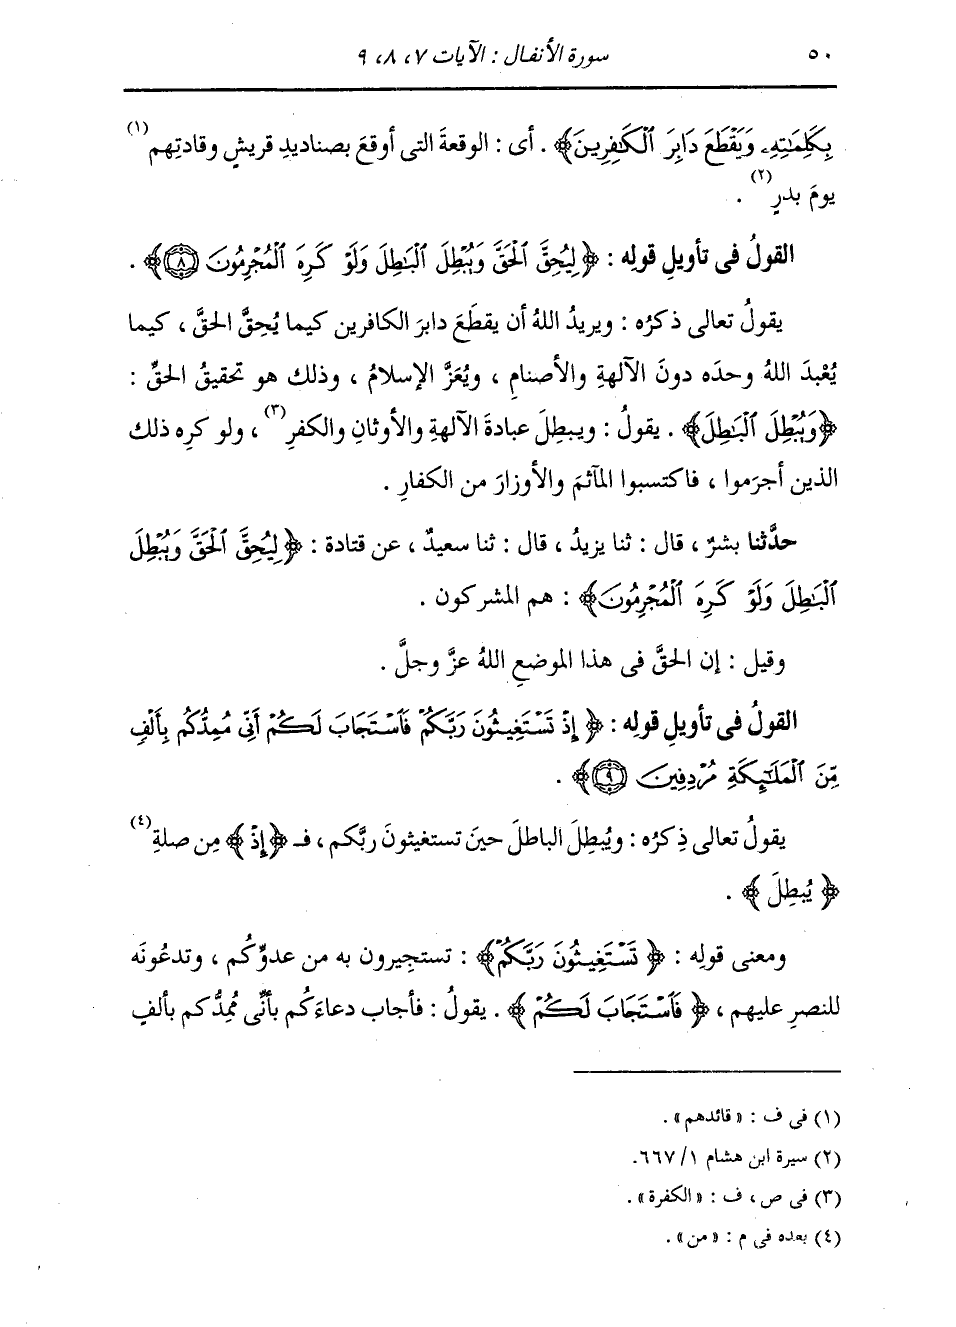 ٥٠ سورة الأنفال : الآيات ٧، ٨، ٩
بِكَلِمَٰتِهِۦ وَيَقْطَعَ دَابِرَ ٱلْكَٰفِرِينَ﴾ . أى : الوقعةَ التى أوقعَ بصناديدِ قريشٍ وقادتِهم(١)
يومَ بدرٍ(٢) .
القولُ فى تأويلِ قولِه : ﴿ لِيُحِقَّ ٱلْحَقَّ وَيُبْطِلَ ٱلْبَٰطِلَ وَلَوْ كَرِهَ ٱلْمُجْرِمُونَ ٨﴾ .
يقولُ تعالى ذكرُه : ويريدُ اللهُ أن يقطَعَ دابرَ الكافرين كيما يُحِقَّ الحقَّ ، كيما
يُعْبدَ اللهُ وحدَه دونَ الآلهةِ والأصنامِ ، ويُعَزَّ الإسلامُ ، وذلك هو تحقيقُ الحقِّ :
﴿وَيُبْطِلَ ٱلْبَٰطِلَ﴾ . يقولُ : ويبطلَ عبادةَ الآلهةِ والأوثانِ والكفرِ(٣) ، ولو كرِه ذلك
الذين أجرَموا ، فاكتسبوا المآثمَ والأوزارَ من الكفارِ .
حدَّثنا بشرٌ ، قال : ثنا يزيدُ ، قال : ثنا سعيدٌ ، عن قتادةَ : ﴿ لِيُحِقَّ ٱلْحَقَّ وَيُبْطِلَ
ٱلْبَٰطِلَ وَلَوْ كَرِهَ ٱلْمُجْرِمُونَ﴾ : هم المشركون .
وقيل : إن الحقَّ فى هذا الموضعِ اللهُ عزَّ وجلَّ .
القولُ فى تأويلِ قولِه : ﴿ إِذْ تَسْتَغِيثُونَ رَبَّكُمْ فَٱسْتَجَابَ لَكُمْ أَنِّى مُمِدُّكُم بِأَلْفٍ
مِّنَ ٱلْمَلَٰٓئِكَةِ مُرْدِفِينَ ٩﴾ .
يقولُ تعالى ذِكرُه : ويُبطِلَ الباطلَ حينَ تستغيثونَ ربَّكم ، فـ ﴿إِذْ ﴾ مِن صلةِ(٤)
﴿ يُبطِلَ ﴾ .
ومعنى قولِه : ﴿ تَسْتَغِيثُونَ رَبَّكُمْ﴾ : تستجيرون به من عدوِّكُم ، وتدعُونَه
للنصرِ عليهم ، ﴿ فَٱسْتَجَابَ لَكُمْ ﴾ . يقولُ : فأجاب دعاءَكُم بأنِّى مُمِدُّكم بألفٍ
(١) فى ف : « قائدهم » .
(٢) سيرة ابن هشام ١/ ٦٦٧.
(٣) فى ص ، ف : « الكفرة » .
(٤) بعده فى م : « من » .